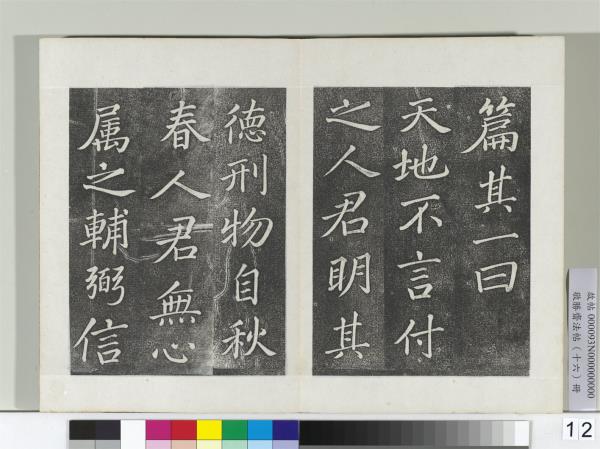 篇其一曰
天地不言付
之人君明其
德刑物自秋
春人君無心
属之輔弼信
故帖000093N000000000
敬勝齋法帖(十六)冊
12